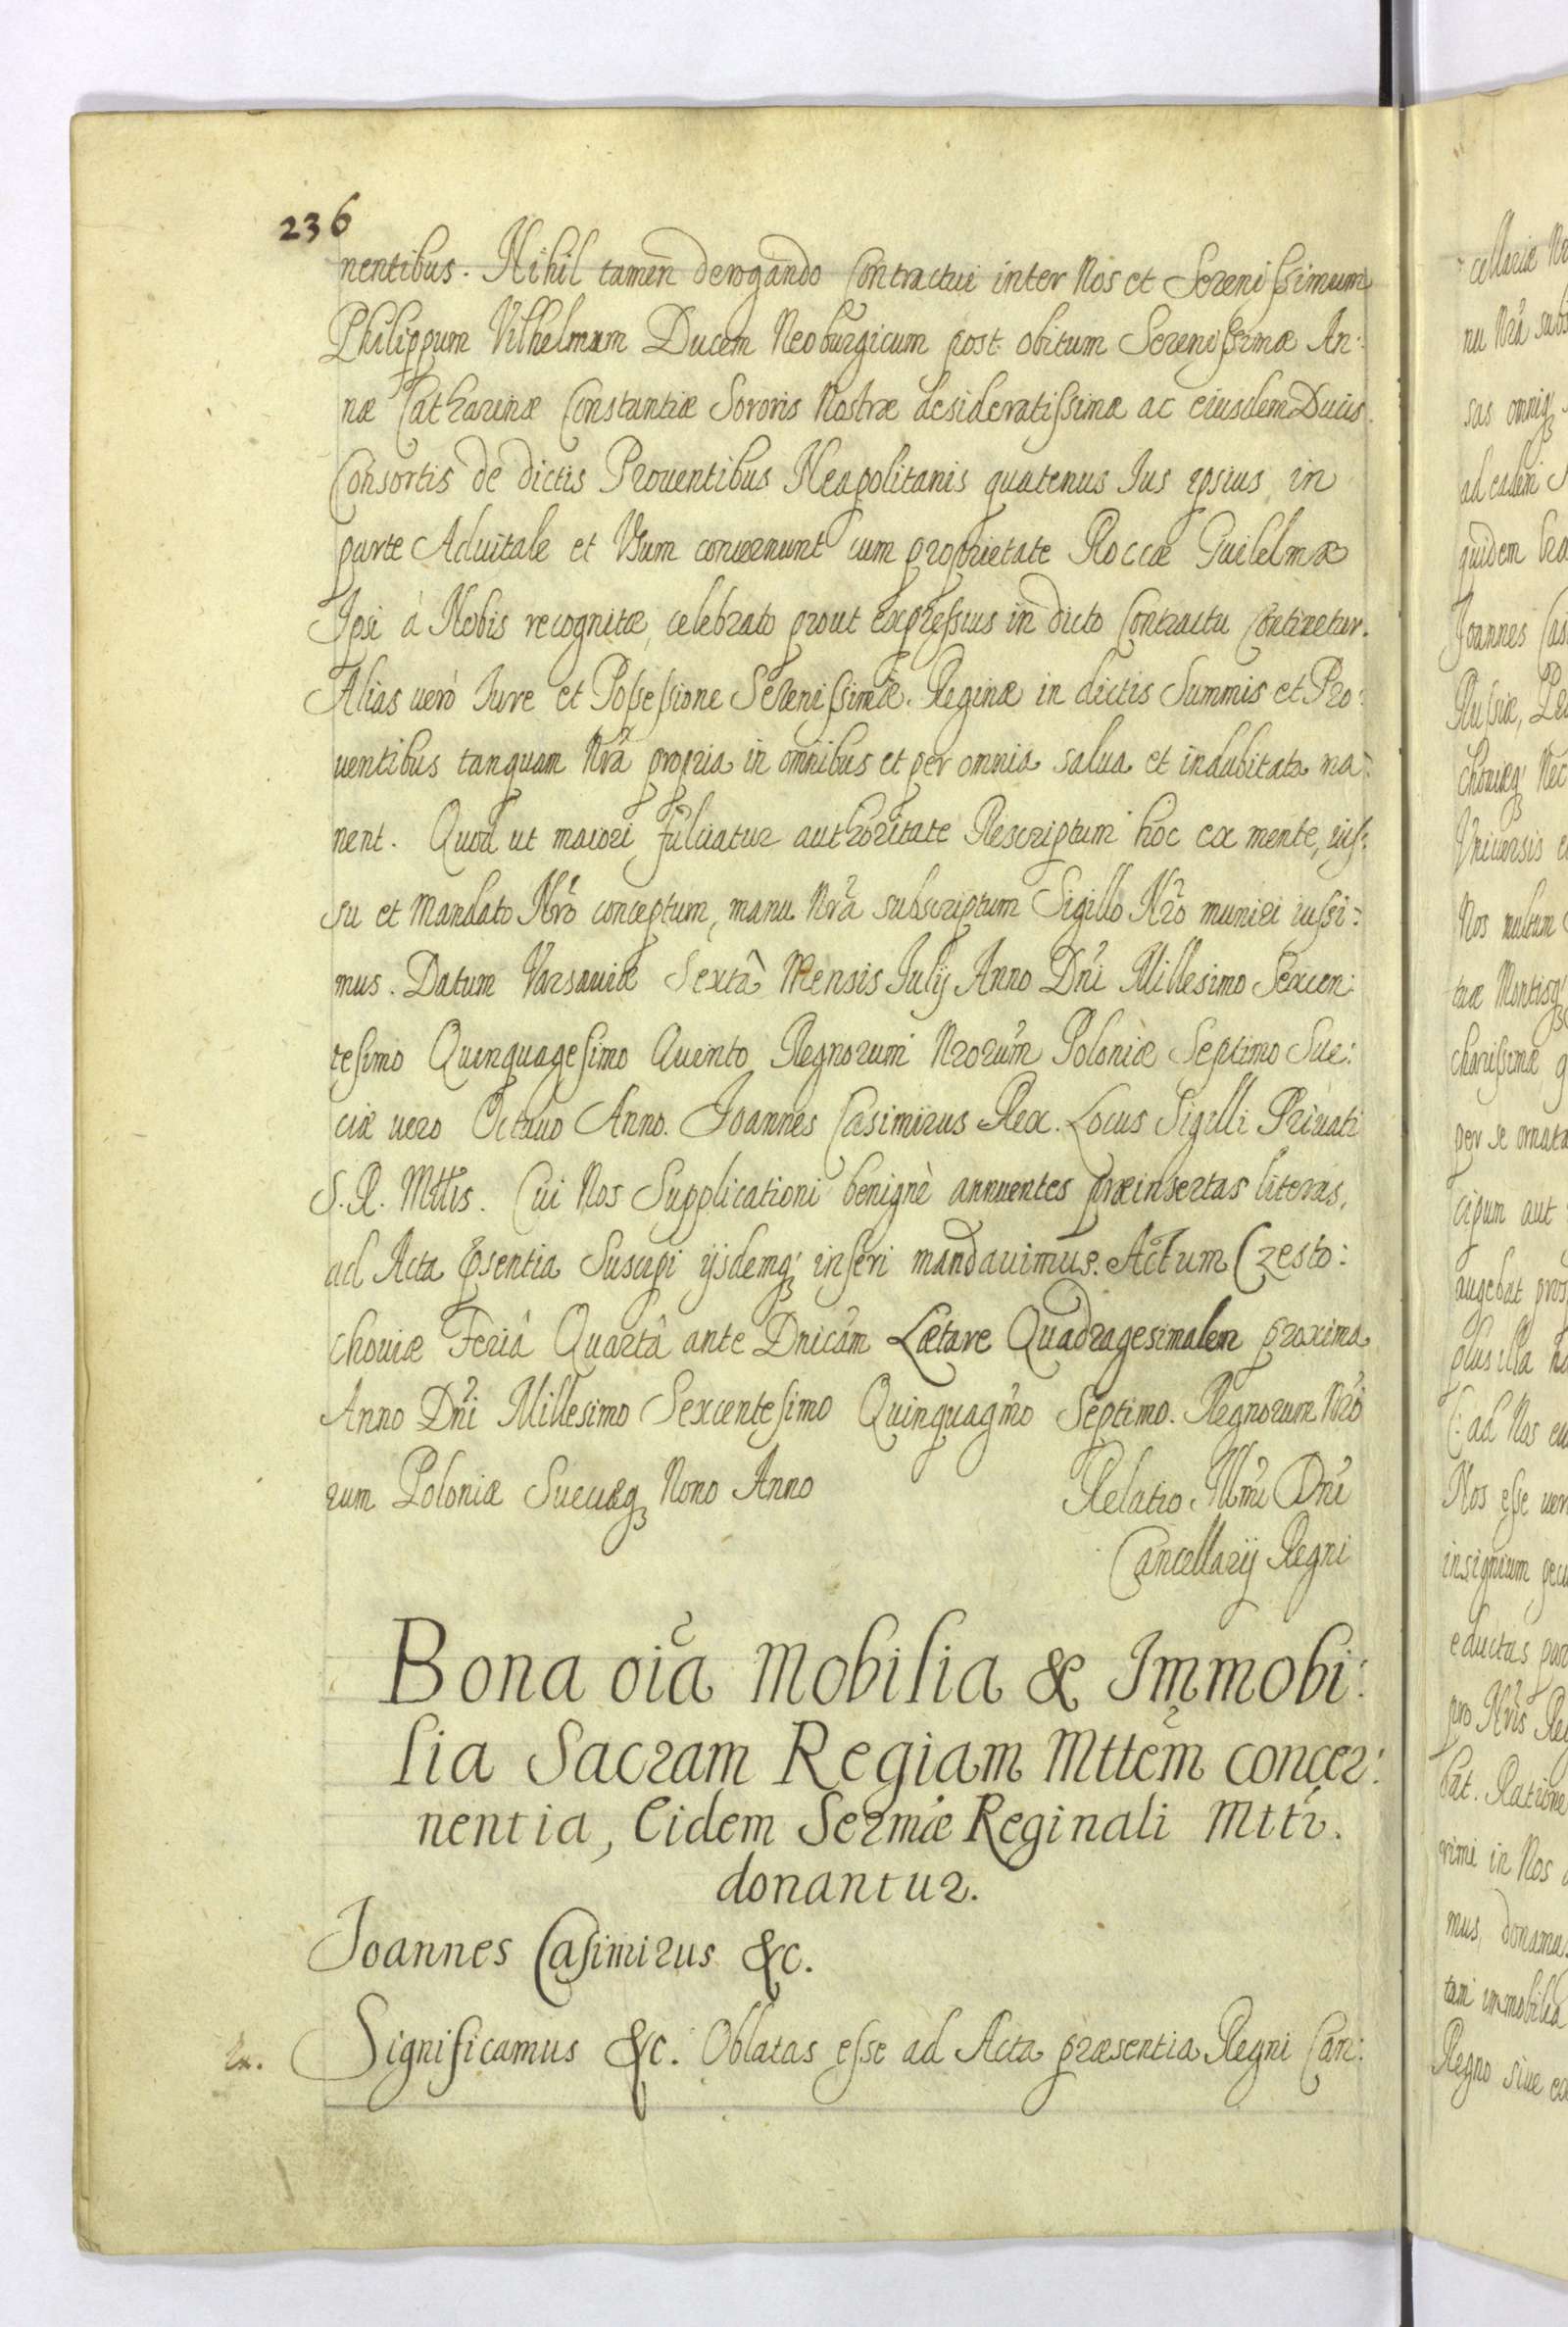 236
nentibus. Nihil tamen derogando Contractui inter Nos et Serenissimum
Philippum Vilhelmum Ducem Neoburgicum post obitum Serenissimæ An:
næ Catharinæ Constantiæ Sororis Nostræ desideratissimæ ac eiusdem Ducis
Consortis de dictis Prouentibus Neapolitanis quatenus Ius ipsius in
parte Aduitale et Usum concernunt cum proprietate Roccæ Guilelmæ
Ipsi à Nobis recognitæ, celebrato prout expressius in dicto Contractu Continetur.
Alias uerò Iure et Possessione Serenissimæ Reginæ in dictis Summis et Pro:
uentibus tanquam Nrã propria in omnibus et per omnia salua et indubitata ma:
nent. Quod ut maiori fulciatur authoritate Rescriptum hoc ex mente, ius:
su et Mandato Nrõ conceptum, manu Nrã subscriptum Sigillo Nrõ muniri iussi:
mus. Datum Varsauiæ Sextâ Mensis Iulij Anno Dñi Millesimo Sexcen:
tesimo Quinquagesimo Quinto Regnorum Nrorum̃ Poloniæ Septimo Sue:
ciæ uero Octauo Anno. Joannes Casimirus Rex. Locus Sigilli Priuati
S. R. Mttis. Cui Nos Supplicationi benignè annuentes præinsertas literas,
ad Acta p̃sentia Suscipi ijsdemq; inseri mandauimus. Actum Czesto:
chouiæ Feriâ Quartâ ante Dnicam̃ Lætare Quadragesimalem proxima
Anno Dñi Millesimo Sexcentesimo Quinquagm̃o Septimo. Regnorum Nrõ
rum Poloniæ Sueciæq; Nono Anno Relatio Illmi Dñi
Cancellarij Regni
Bona oĩa Mobilia & Immobi:
lia Sacram Regiam Mttem̃ concer:
nentia, Eidem Sermæ Reginali Mtti.
donantur.
Joannes Casimirus &c.
Significamus &c. Oblatas esse ad Acta præsentia Regni Can: